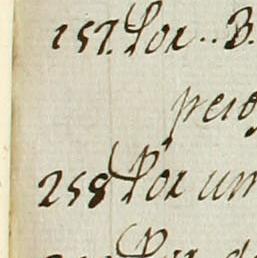 157. Por.. B.
peio
258 Por um